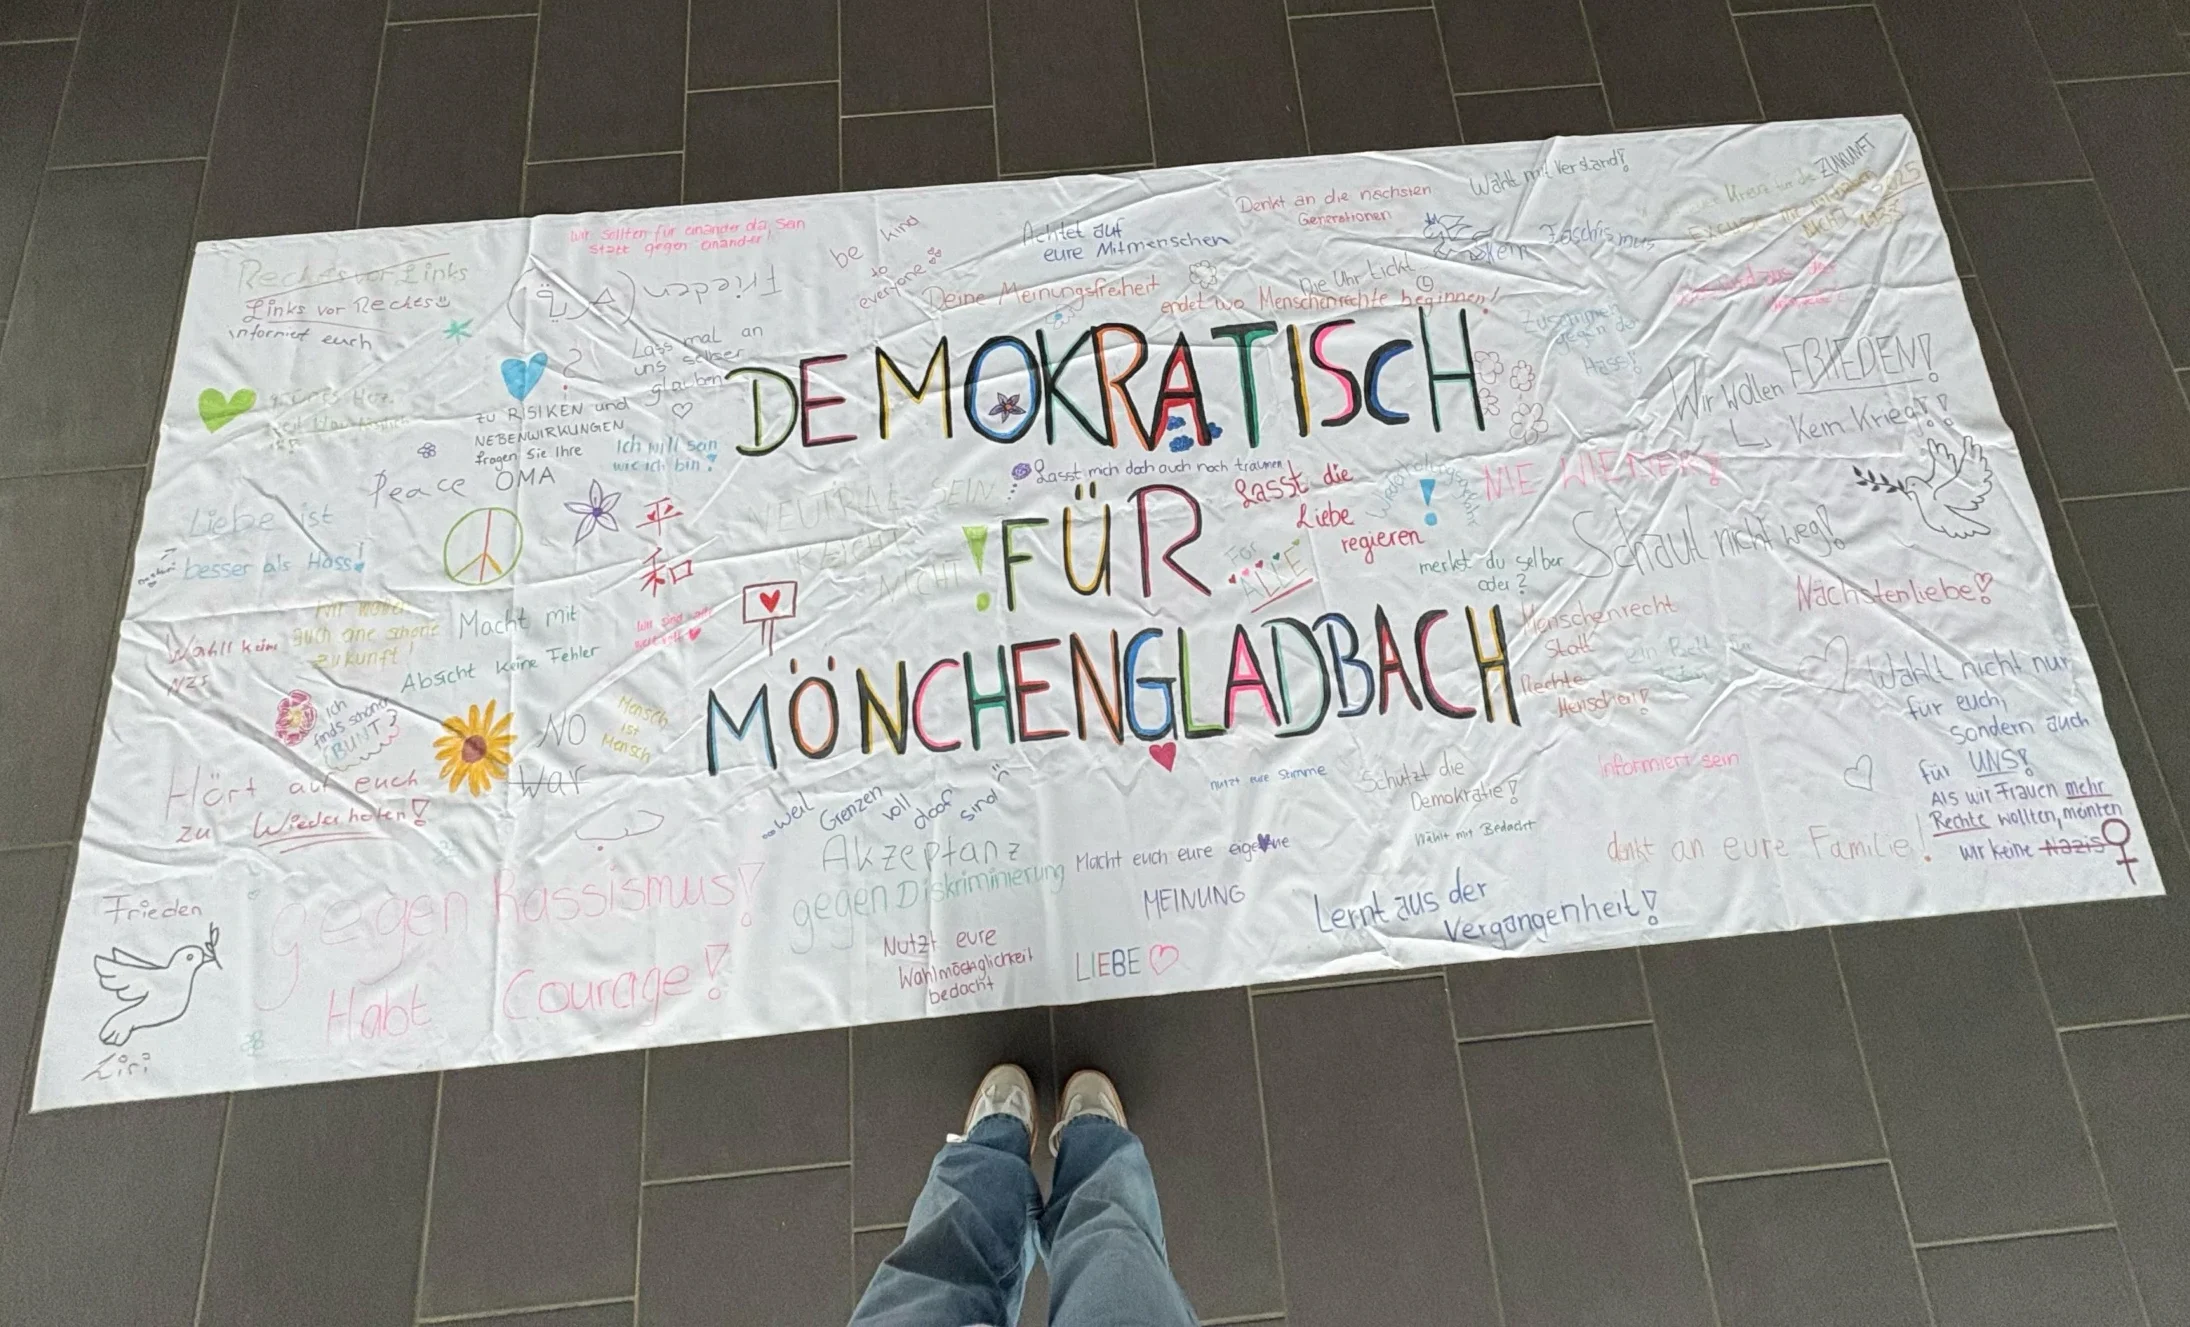 wir sollten für einander da sein
statt gegen einander!
be kind
to
everyone
Achtet auf
eure Mitmenschen
Denkt an die nächsten
Generationen
Wählt mit Verstand!
ZUKUNFT
kein Faschismus
Reches vor Links
Links vor Reches
informiert euch
Frieden
Deine Meinungsfreiheit
endet wo Menschenrechte beginnen!
Die Uhr tickt
Lass mal an
uns selber
glauben
DEMOKRATISCH
FÜR
MÖNCHENGLADBACH
Zusammen
gegen den
Hass!
Wir wollen FRIEDEN!
Kein Krieg!!
zu RISIKEN und
NEBENWIRKUNGEN
fragen Sie Ihre
OMA
Ich will sein
wie ich bin!
Peace
Liebe ist
besser als Hass!
平
和
NEUTRAL SEIN
REICHT
NICHT!
Lasst mich doch auch noch träumen!
Lasst die
Liebe
regieren
FOR
ALLE
Wiederholungsgefahr
merkst du selber
oder?
NIE WIEDER!
Schaut nicht weg!
Nächstenliebe!
Menschenrecht
Statt
Rechte
Menschen!
Wir wollen
auch eine schöne
zukunft!
Wahll keine
NZS
Macht mit
Absicht keine Fehler
Ich
finds schöner
BUNT
NO
war
Mensch
ist
Mensch
Hört auf euch
zu Wiederholen!
حب
...weil Grenzen voll doof sind
nutzt eure Stimme
Schützt die
Demokratie!
Wählt mit Bedacht
informiert sein
Wählt nicht nur
für euch,
sondern auch
für UNS!
Als wir Frauen mehr
Rechte wollten, meinten
wir keine Nazis
denkt an eure Familie!
Akzeptanz
gegen Diskriminierung
Macht euch eure eigene
MEINUNG
Lernt aus der
Vergangenheit!
gegen Rassismus!
Habt Courage!
Nutzt eure
Wahlmöglichkeit
bedacht
LIEBE
Frieden